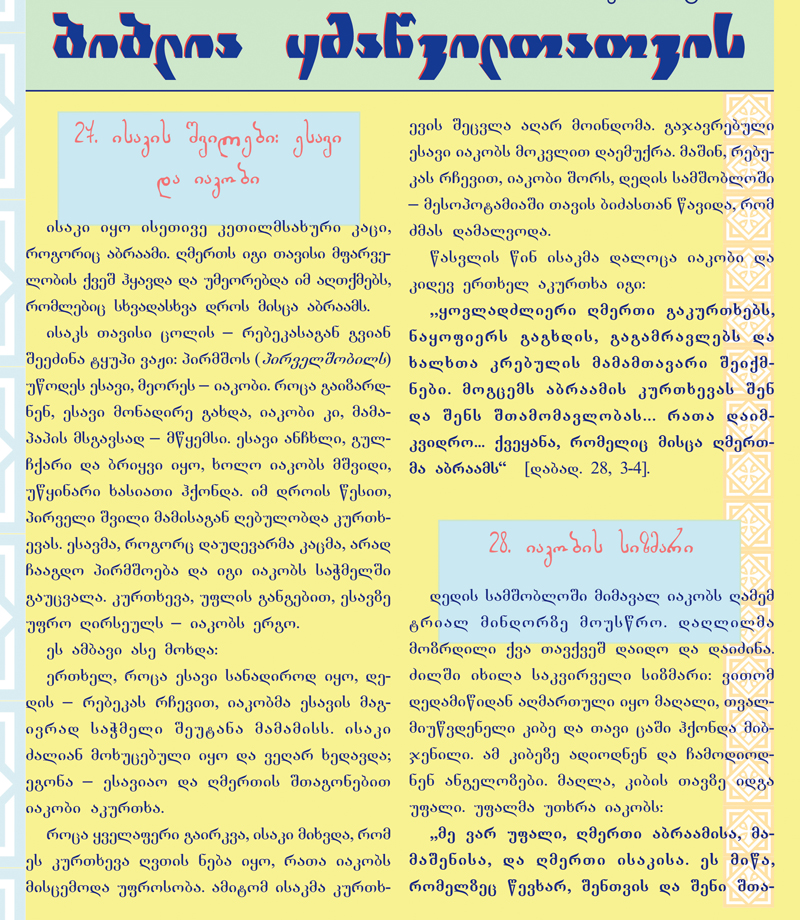 ბიბლია ყმაწვილთათვის
27. ისაკის შვილები: ესავი
და იაკობი
ისაკი იყო ისეთივე კეთილმსახური კაცი,
როგორიც აბრაამი. ღმერთს იგი თავისი მფარვე-
ლობის ქვეშ ჰყავდა და უმეორებდა იმ აღთქმებს,
რომლებიც სხვადასხვა დროს მისცა აბრაამს.
ისაკს თავისი ცოლის – რებეკასაგან გვიან
შეეძინა ტყუპი ვაჟი: პირმშოს (პირველშობილს)
უწოდეს ესავი, მეორეს – იაკობი. როცა გაიზარდ-
ნენ, ესავი მონადირე გახდა, იაკობი კი, მამა-
პაპის მსგავსად – მწყემსი. ესავი ანჩხლი, გულ-
ჩქარი და ბრიყვი იყო, ხოლო იაკობს მშვიდი,
უწყინარი ხასიათი ჰქონდა. იმ დროის წესით,
პირველი შვილი მამისაგან ღებულობდა კურთხ-
ევას. ესავმა, როგორც დაუდევარმა კაცმა, არად
ჩააგდო პირმშოება და იგი იაკობს საჭმელში
გაუცვალა. კურთხევა, უფლის განგებით, ესავზე
უფრო ღირსეულს – იაკობს ერგო.
ეს ამბავი ასე მოხდა:
ერთხელ, როცა ესავი სანადიროდ იყო, დე-
დის – რებეკას რჩევით, იაკობმა ესავის მაგ-
ივრად საჭმელი შეუტანა მამამისს. ისაკი
ძალიან მოხუცებული იყო და ვეღარ ხედავდა;
ეგონა – ესავიაო და ღმერთის შთაგონებით
იაკობი აკურთხა.
როცა ყველაფერი გაირკვა, ისაკი მიხვდა, რომ
ეს კურთხევა ღვთის ნება იყო, რათა იაკობს
მისცემოდა უფროსობა. ამიტომ ისაკმა კურთხ-
ევის შეცვლა აღარ მოინდომა. გაჯავრებული
ესავი იაკობს მოკვლით დაემუქრა. მაშინ, რებე-
კას რჩევით, იაკობი შორს, დედის სამშობლოში
– მესოპოტამიაში თავის ბიძასთან წავიდა, რომ
ძმას დამალვოდა.
წასვლის წინ ისაკმა დალოცა იაკობი და
კიდევ ერთხელ აკურთხა იგი:
„ყოვლადძლიერი ღმერთი გაკურთხებს,
ნაყოფიერს გაგხდის, გაგამრავლებს და
ხალხთა კრებულის მამამთავარი შეიქმ-
ნები. მოგცემს აბრაამის კურთხევას შენ
და შენს შთამომავლობას... რათა დაიმ-
კვიდრო... ქვეყანა, რომელიც მისცა ღმერთ-
მა აბრაამს“ [დაბად. 28, 3-4].
28. იაკობის სიზმარი
დედის სამშობლოში მიმავალ იაკობს ღამემ
ტრიალ მინდორზე მოუსწრო. დაღლილმა
მოზრდილი ქვა თავქვეშ დაიდო და დაიძინა.
ძილში იხილა საკვირველი სიზმარი: ვითომ
დედამიწიდან აღმართული იყო მაღალი, თვალ-
მიუწვდენელი კიბე და თავი ცაში ჰქონდა მიბ-
ჯენილი. ამ კიბეზე ადიოდნენ და ჩამოდიოდ-
ნენ ანგელოზები. მაღლა, კიბის თავზე იდგა
უფალი. უფალმა უთხრა იაკობს:
„მე ვარ უფალი, ღმერთი აბრაამისა, მა-
მაშენისა, და ღმერთი ისაკისა. ეს მიწა,
რომელზეც წევხარ, შენთვის და შენი შთა-